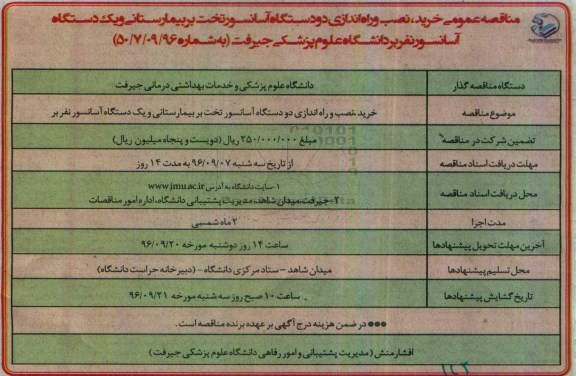 مناقصه عمومی خرید، نصب و راه اندازی دو دستگاه آسانسور تخت بر بیمارستانی و یک دستگاه
آسانسور نفر بر دانشگاه علوم پزشکی جیرفت (به شماره ۵۰/۷/۰۹/۹۶)
دستگاه مناقصه گذار دانشگاه علوم پزشکی و خدمات بهداشتی درمانی جیرفت
موضوع مناقصه خرید، نصب و راه اندازی دو دستگاه آسانسور تخت بر بیمارستانی و یک دستگاه آسانسور نفر بر
تضمین شرکت در مناقصه مبلغ ۲۵۰/۰۰۰/۰۰۰ ریال (دویست و پنجاه میلیون ریال)
مهلت دریافت اسناد مناقصه از تاریخ سه شنبه ۹۶/۰۹/۰۷ به مدت ۱۴ روز
محل دریافت اسناد مناقصه ۱-سایت دانشگاه به آدرس www.jmu.ac.ir
۲-جیرفت، میدان شاهد، مدیریت پشتیبانی دانشگاه، اداره امور مناقصات
مدت اجرا ۲ ماه شمسی
آخرین مهلت تحویل پیشنهادها ساعت ۱۴ روز دوشنبه مورخه ۹۶/۰۹/۲۰
محل تسلیم پیشنهادها میدان شاهد - ستاد مرکزی دانشگاه - (دبیرخانه حراست دانشگاه)
تاریخ گشایش پیشنهادها ساعت ۱۰ صبح روز سه شنبه مورخه ۹۶/۰۹/۲۱
*** در ضمن هزینه درج آگهی بر عهده برنده مناقصه است.
افشارمنش (مدیریت پشتیبانی و امور رفاهی دانشگاه علوم پزشکی جیرفت)